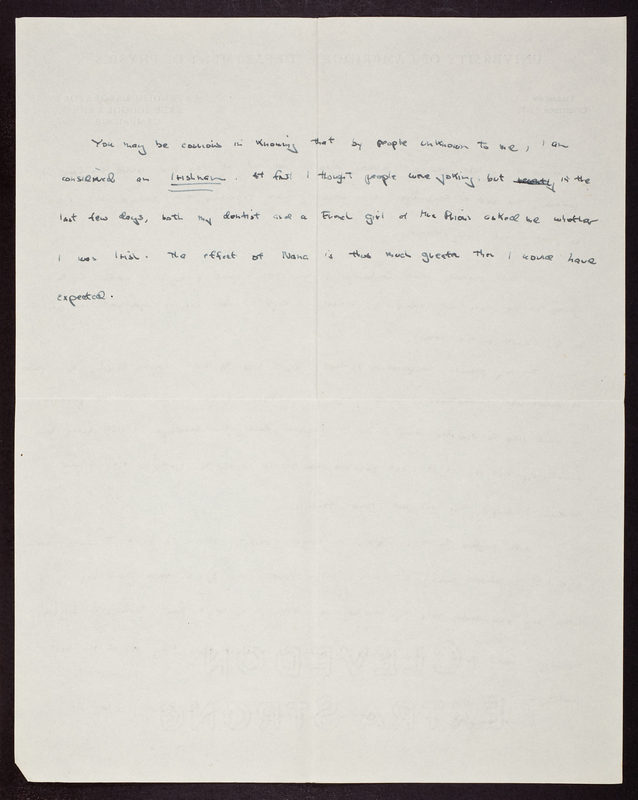 You may be curious in knowing that by people unknown to me, I am
considered an Irishman. At first I thought people were joking, but in the
last few days, both my dentist and a French girl at the Prior's asked me whether
I was Irish. The effect of Nana is thus much greater than I would have
expected.
UNIVERSITY OF CAMBRIDGE DEPARTMENT OF PHYSICS
CLEVEDON
EXTRA STRONG